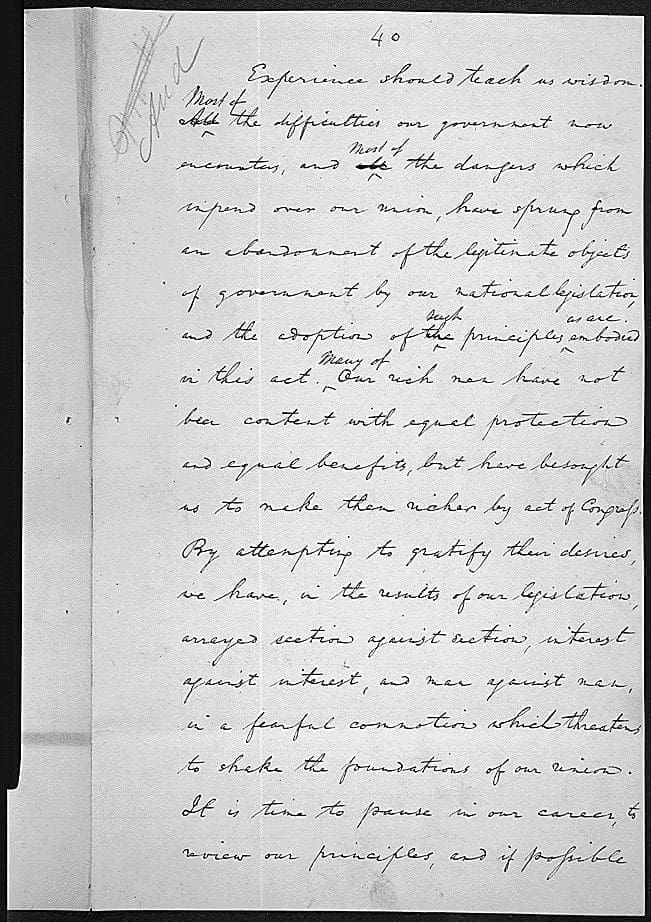 40
Experience should teach us wisdom.
Most of
All the difficulties our government now
Most of
encounters, and all the dangers which
impend over our union, have sprung from
an abandonment of the legitimate objects
of government by our national legislation,
such as are
and the adoption of the principles embodied
Many of
in this act. Our rich men have not
been content with equal protection
and equal benefits, but have besought
us to make them richer by act of Congress.
By attempting to gratify their desires,
we have, in the results of our legislation,
arrayed section against section, interest
against interest, and man against man,
in a fearful commotion which threatens
to shake the foundations of our union.
It is time to pause in our career, to
review our principles, and if possible